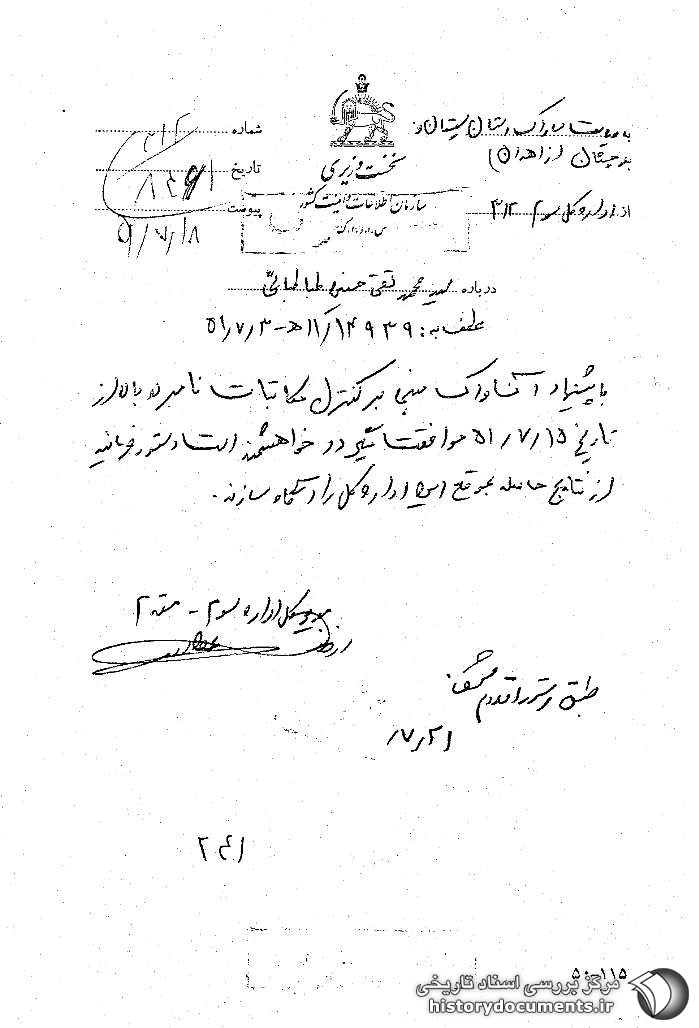 به ریاست ساواک استان سیستان و
بلوچستان (زاهدان)
از اداره کل سوم ۳۱۲
نخست وزیری
سازمان اطلاعات و امنیت کشور
شماره ۳۱۲/
تاریخ
پیوست
۵۱/۷/۱۸
درباره سید محمد تقی حسینی طباطبائی
عطف به: ۱۴۹۳۹/۱۱ه‍ - ۵۱/۷/۳
با پیشنهاد آن ساواک مبنی بر کنترل مکاتبات نامبرده بالا از
تاریخ ۵۱/۷/۱۵ موافقت میگردد خواهشمند است دستور فرمائید
از نتایج حاصله بموقع این اداره کل را آگاه سازند.
مدیر کل اداره سوم - مقدم
طبق دستور اقدام
۷/۲۱
۲۴۱
۵۰-۱۱۵
مرکز بررسی اسناد تاریخی
historydocuments.ir